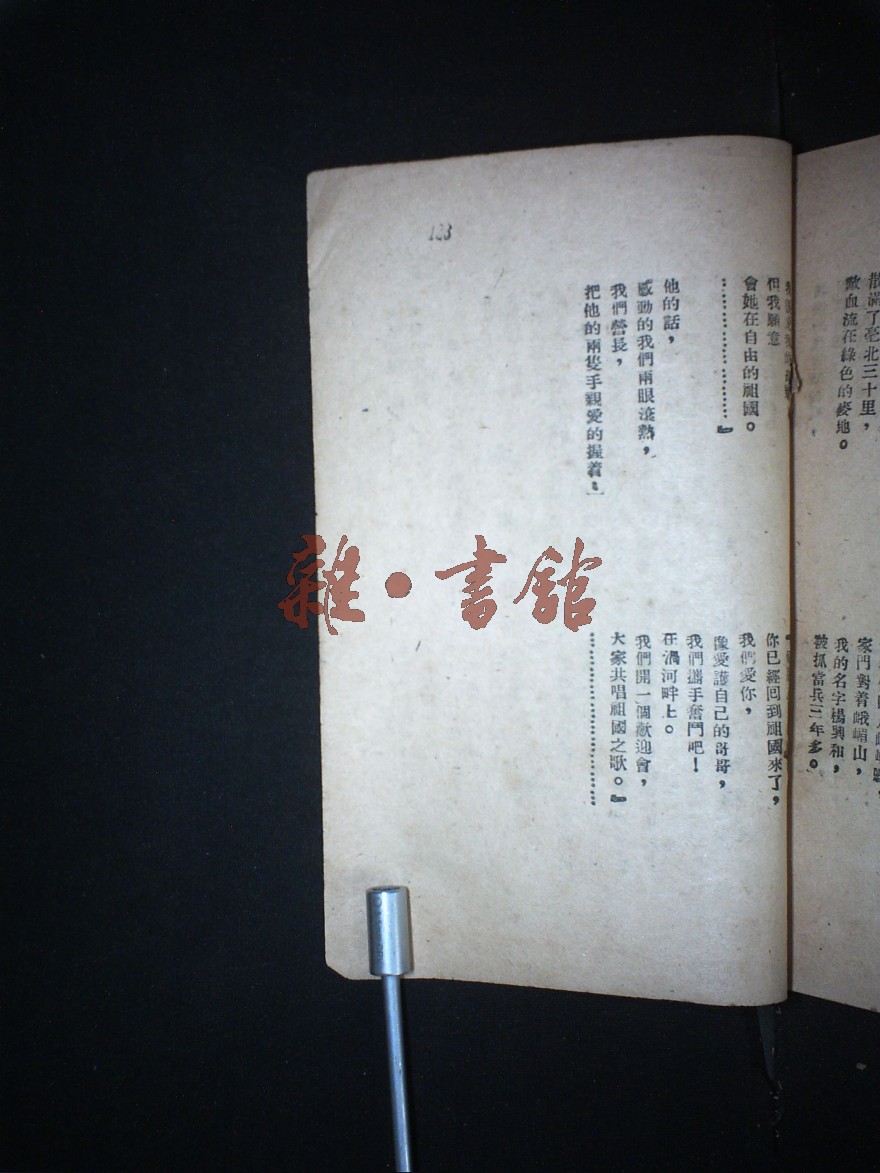 散滿了亳北三十里，
血流在綠色的麥地。
家門對着峨嵋山，
我的名字楊興和，
被抓當兵三年多。
123
但我願意
會她在自由的祖國。
……………………』
他的話，
感動的我們兩眼滾熱，
我們營長，
把他的兩隻手親愛的握着：
你已經回到祖國來了，
我們愛你，
像愛護自己的哥哥，
我們攜手奮鬥吧！
在渦河畔上。
我們開一個歡迎會，
大家共唱祖國之歌。』
……………………
雜•書館